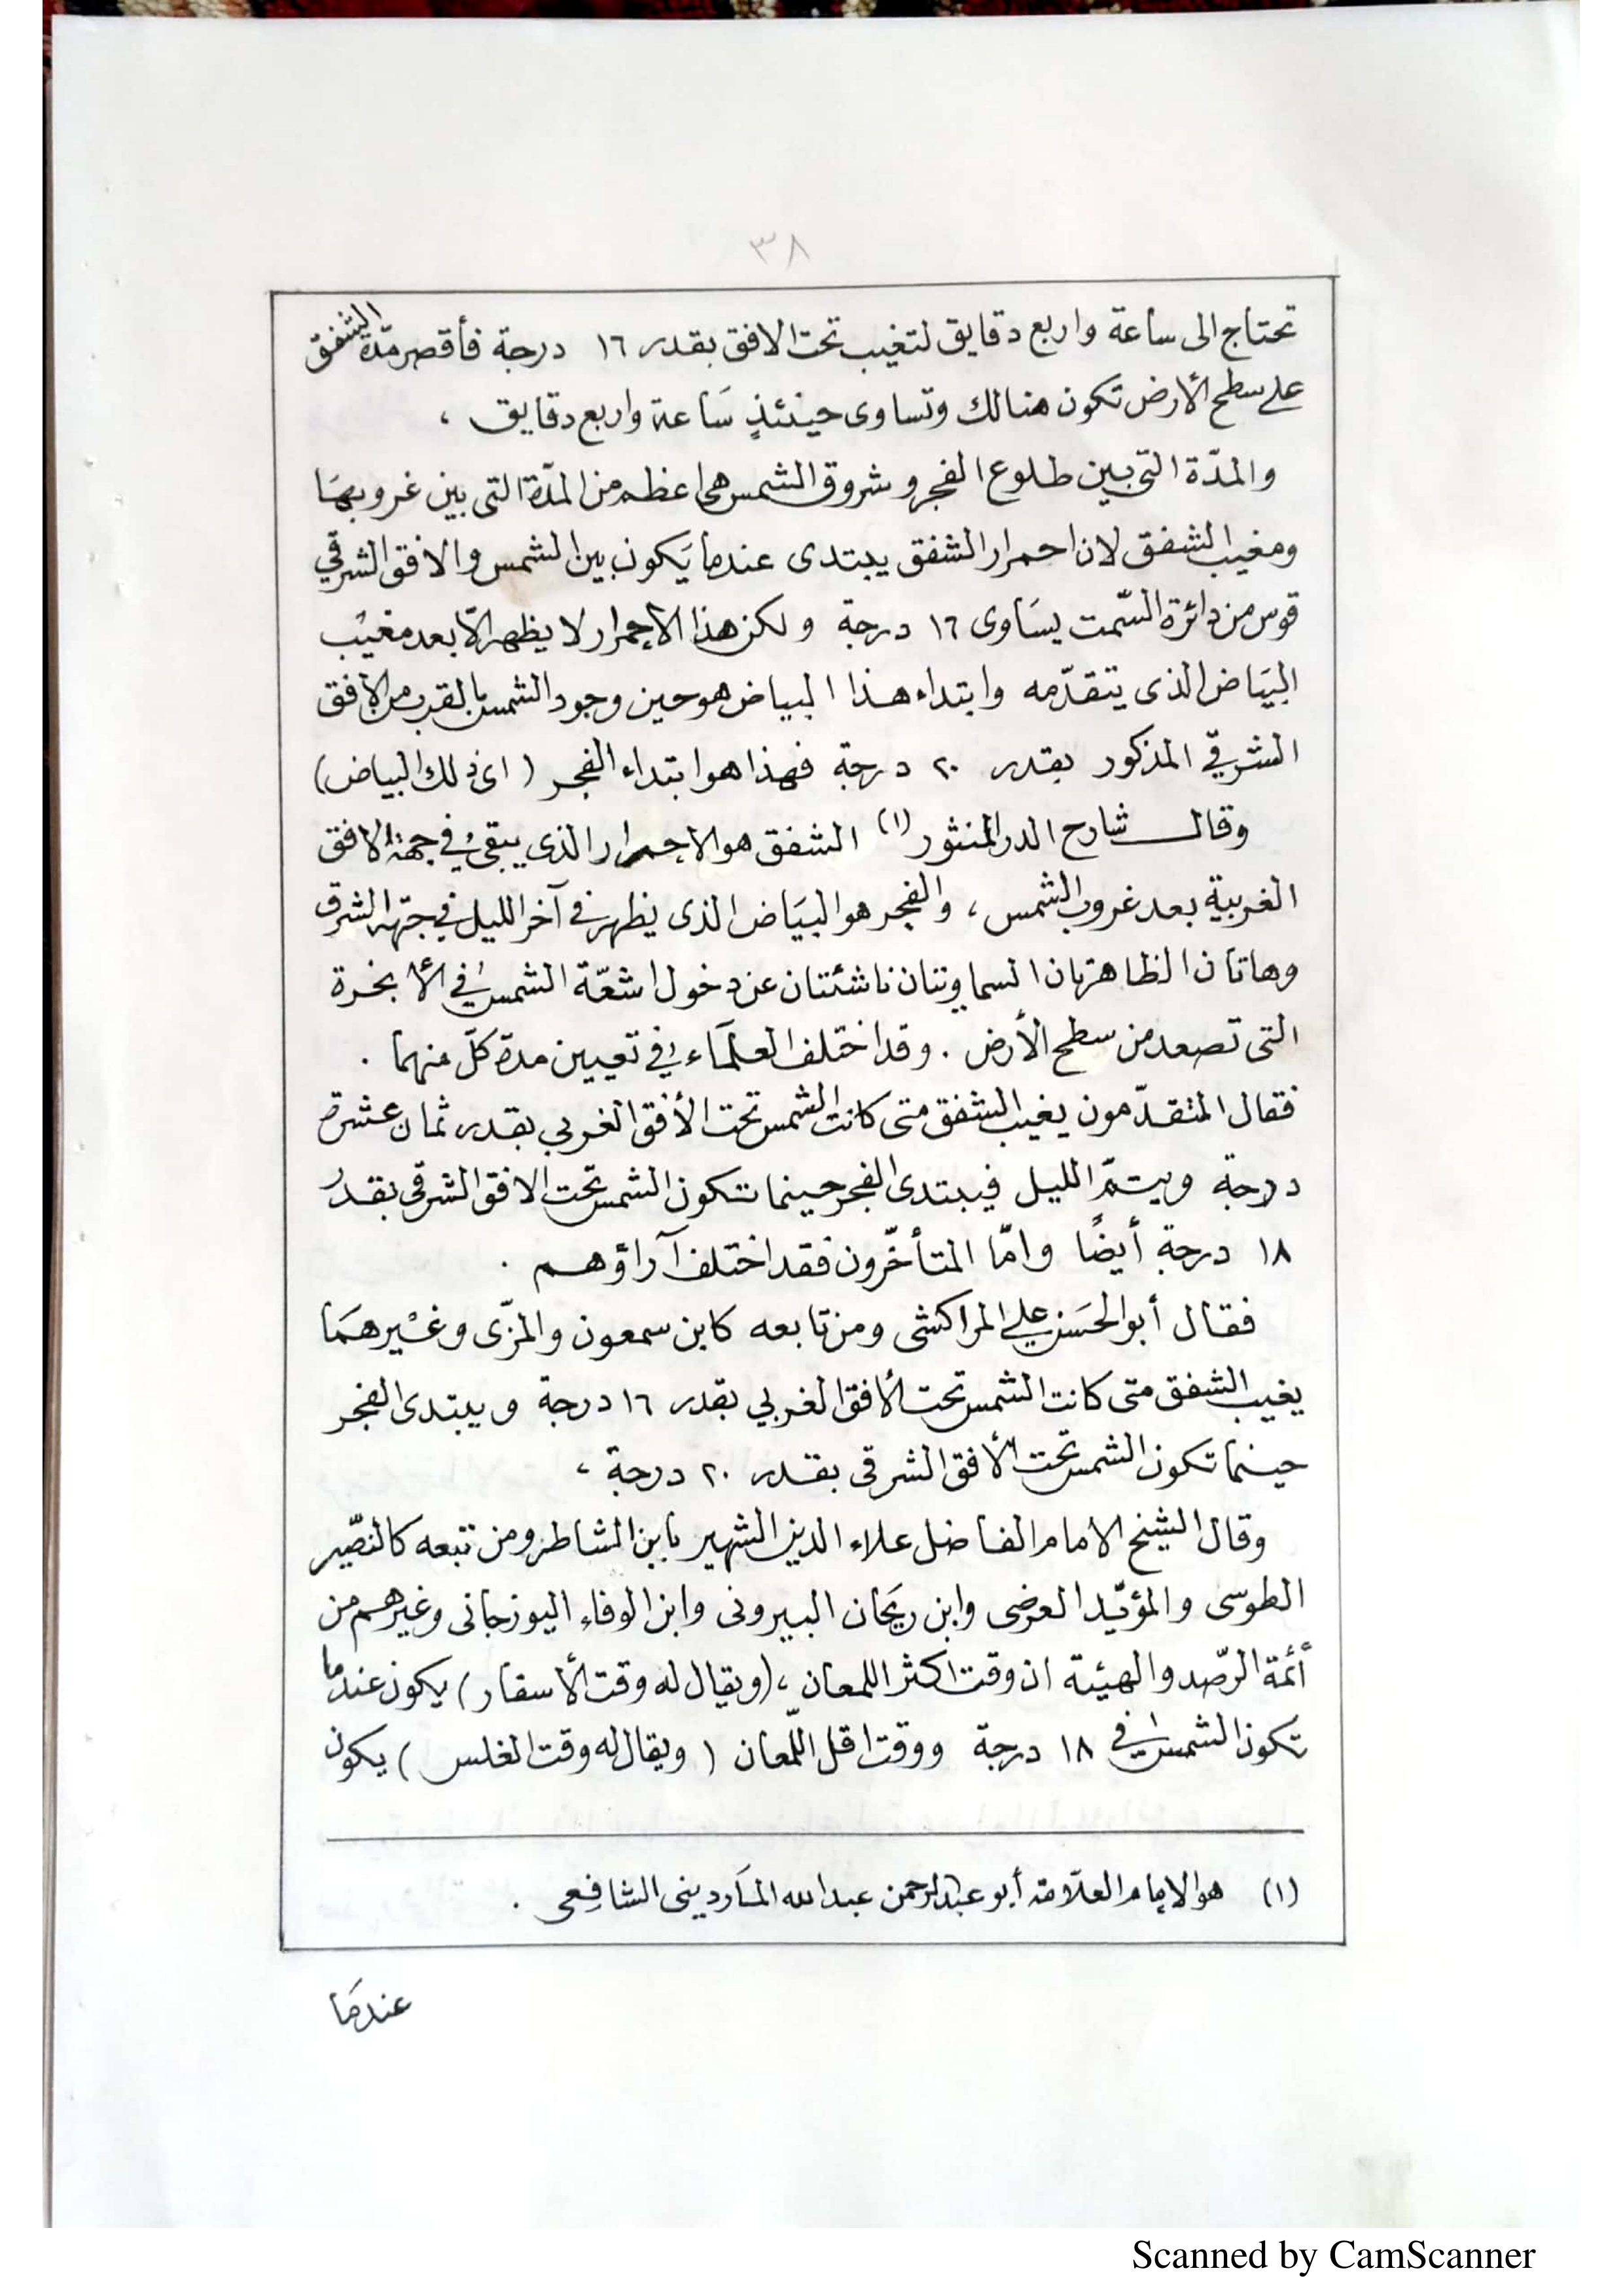 ٣٨
تحتاج الى ساعة واربع دقايق لتغيب تحت الافق بقدر ١٦ درجة فأقصر مدّة الشفق
على سطح الأرض تكون هنالك وتساوى حينئذٍ سَاعة واربع دقايق ،
والمدّة التى بين طلوع الفجر وشروق الشمس هى اعظم من المدّة التى بين غروبهَا
ومغيب الشفق لان احمرار الشفق يبتدى عندما يَكون بين الشمس والافق الشرقي
قوس من دائرة السّمت يسَاوى ١٦ درجة ولكن هذا الإحمرار لا يظهر الاّ بعد مغيْب
البيَاض الذى يتقدّمه وابتداء هذا البياض هو حين وجود الشمس بالقرب من الافق
الشرقيّ المذكور بقدر ٢٠ درجة فهذا هو ابتداء الفجر ( اى ذلك البياض )
وقال شارح الدر المنثور (١) الشفق هو الاحمرار الذى يبقى في جهة الافق
الغربية بعد غروب الشمس ، والفجر هو البيَاض الذى يظهر فى آخر الليل في جهة الشرق
وهاتان الظاهرتان السماويتان ناشئتان عن دخول اشعّة الشمس في الأبخرة
التى تصعد من سطح الأرض . وقد اختلف العلمآء في تعيين مدة كلّ منهما .
فقال المتقدّمون يغيب الشفق متى كانت الشمس تحت الأفق الغربي بقدر ثمان عشرة
درجة ويتمّ الليل فيبتدى الفجر حينما تكون الشمس تحت الافق الشرقى بقدر
١٨ درجة أيضًا وامّا المتأخّرون فقد اختلف آراؤهم .
فقال أبو الحَسن علي المراكشى ومن تابعه كابن سمعون والمزّى وغيْرهمَا
يغيب الشفق متى كانت الشمس تحت الأفق الغربي بقدر ١٦ درجة ويبتدى الفجر
حينما تكون الشمس تحت الأفق الشرقى بقدر ٢٠ درجة ،
وقال الشيخ الامام الفاضل علاء الدين الشهير بابن الشاطر ومن تبعه كالنصّير
الطوسى والمؤيّد العرضى وابن ريَحان البيرونى وابن الوفاء اليوزجانى وغيرهم من
أئمة الرّصد والهيئة ان وقت اكثر اللمعان ، ( ويقال له وقت الأسفار ) يكون عندما
تكون الشمس في ١٨ درجة ووقت اقل اللّمعان ( ويقال له وقت الغلس ) يكون
(١) هو الإمام العلاّمة أبو عبد الرحمن عبد الله المَاردينى الشافِعى .
عندمَا
Scanned by CamScanner